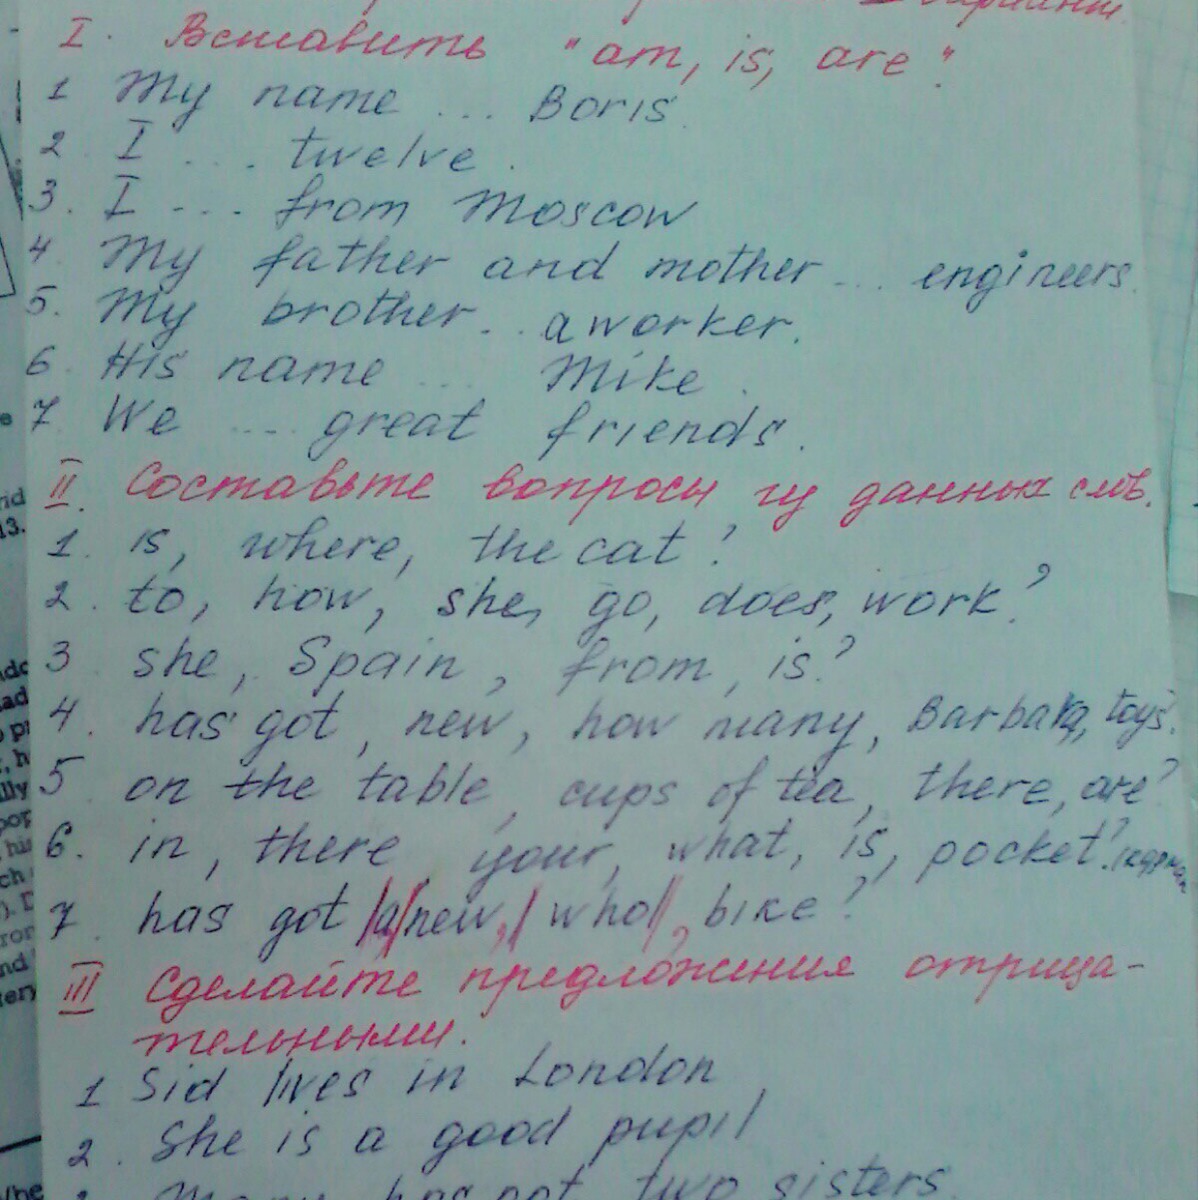 I. Вставить "am, is, are".
1 My name ... Boris.
2 I ... twelve.
3. I ... from Moscow
4 My father and mother ... engineers.
5. My brother ... a worker.
6. His name ... Mike.
7 We ... great friends.
II. Составьте вопросы из данных слов.
1. is, where, the cat?
2. to, how, she, go, does, work?
3 she, Spain, from, is?
4. has got, new, how many, Barbara, toys?
5 on the table, cups of tea, there, are?
6. in, there your, what, is, pocket? (карман
7. has got /a/ new, / who/, bike?
III Сделайте предложения отрица-
тельными.
1 Sid lives in London
2. She is a good pupil
two sisters